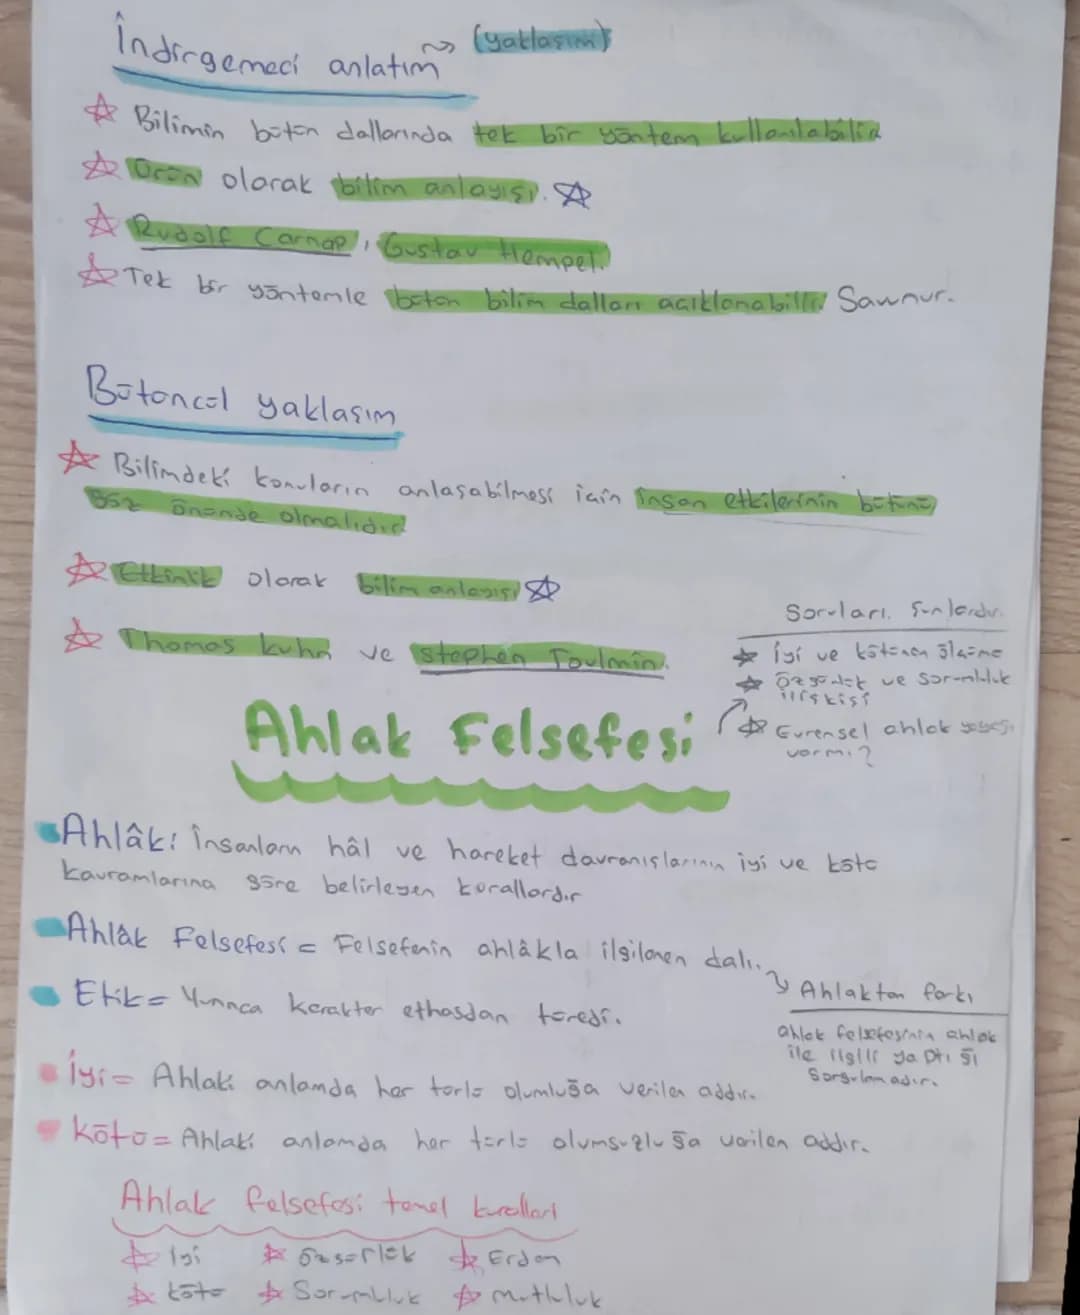 İndirgemeci anlatım ~> (yaklaşım)
☆ Bilimin bütün dallarında tek bir yöntem kullanılabilir
☆ Ürün olarak bilim anlayışı. ☆
☆ Rudolf Carnap, Gustav Hempel.
☆ Tek bir yöntemle bütün bilim dalları açıklanabilir. Savunur.
Bütüncül yaklaşım
☆ Bilimdeki konuların anlaşabilmesi için insan etkilerinin bütünü
göz önünde olmalıdır
☆ Etkinlik olarak bilim anlayışı ☆
☆ Thomas kuhn ve stephen Toulmin.
Soruları. Şunlardır.
☆ İyi ve kötünün ölçüne
☆ özgürlük ve sorumluluk
ilişkisi
☆ Evrensel ahlak yasası
varmı?
Ahlak Felsefesi
Ahlâk: İnsanların hâl ve hareket davranışlarının iyi ve kötü
kavramlarına göre belirleyen kurallardır
Ahlâk Felsefesi = Felsefenin ahlâkla ilgilenen dalı.
Ahlaktan farkı
ahlak felsefesinin ahlak
ile ilgili yaptığı
Sorgulamadır.
Etik = Yunnca karakter ethosdan türedi.
İyi = Ahlaki anlamda her türlü olumluğa verilen addır.
kötü = Ahlaki anlamda her türlü olumsuzluğa verilen addır.
Ahlak felsefesi temel kuralları
☆ İyi ☆ özgürlük ☆ Erdem
☆ kötü ☆ Sorumluluk ☆ mutluluk